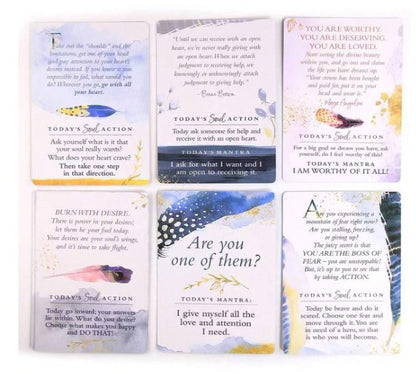 Take out the "shoulds" and the
limitations, get out of your head
and pay attention to your heart's
desires instead. If you knew it was
impossible to fail, what would you
do? Wherever you go, go with all
your heart.
TODAY'S Soul ACTION
Ask yourself what is it that
your soul really wants?
What does your heart crave?
Then take one step
in that direction.
"Until we can receive with an open
heart, we're never really giving with
an open heart. When we attach
judgment to receiving help, we
knowingly or unknowingly attach
judgment to giving help."
- Brene Brown
TODAY'S Soul ACTION
Today ask someone for help and
receive it with an open heart.
TODAY'S MANTRA
I ask for what I want and I
am open to receiving it.
YOU ARE WORTHY.
YOU ARE DESERVING.
YOU ARE LOVED.
Start seeing the divine beauty
within you, and go out and claim
the life you have dreamt up.
"Your crown has been bought
and paid for, put it on your
head and wear it."
- Maya Angelou
TODAY'S Soul ACTION
For a big goal or dream you have, ask
yourself, do I feel worthy of this?
TODAY'S MANTRA
I AM WORTHY OF IT ALL!
BURN WITH DESIRE.
There is power in your desires;
let them be your fuel today.
Your desires are your soul's wings,
and it's time to take flight.
TODAY'S Soul ACTION
Today go inward; your answers
lie within. What do you desire?
Choose what makes you happy
and DO THAT!
Are you
one of them?
TODAY'S MANTRA:
I give myself all the
love and attention
I need.
Are you experiencing a
mountain of fear right now?
Are you stalling, freezing,
or giving up?
The juicy secret is that
YOU ARE THE BOSS OF
FEAR – you are unstoppable!
But, it's up to you to see that
by taking ACTION.
TODAY'S Soul ACTION
Today be brave and do it
scared. Choose one fear and
move through it. You are
in need of a hero, so that
is who you will become.